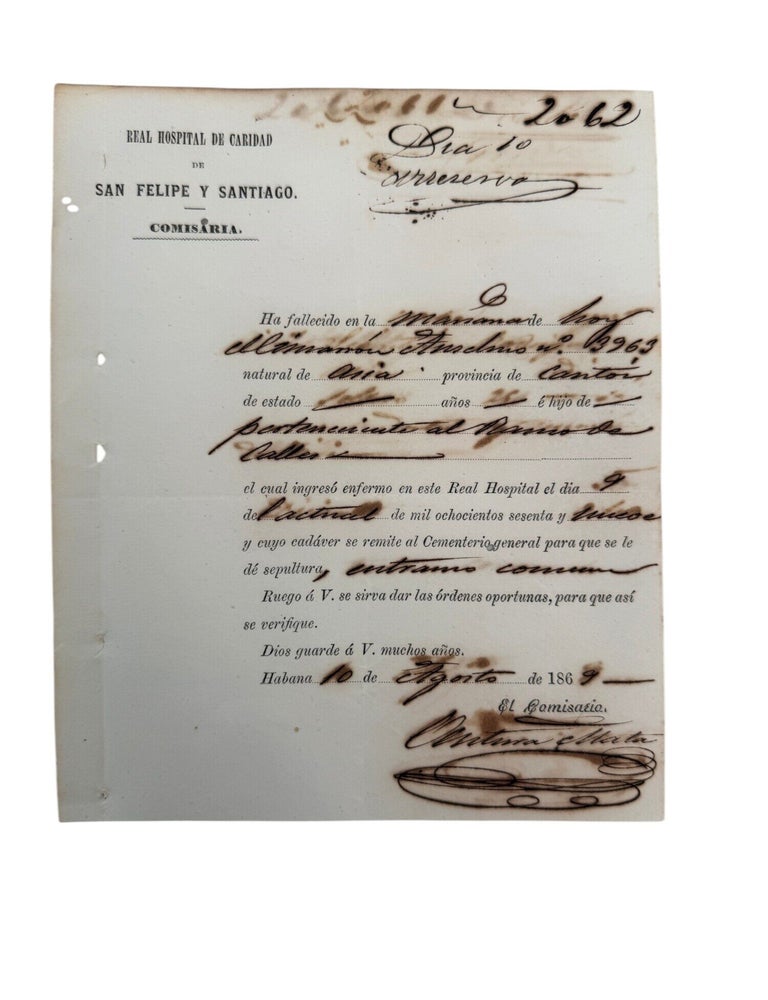 2062
REAL HOSPITAL DE CARIDAD
DE
SAN FELIPE Y SANTIAGO.
COMISARIA.
Dia 10
Ha fallecido en la mañana de hoy
el cimarrón Anselmo nº. 3963
natural de Asia provincia de Cantón
de estado años é hijo de
perteneciente al Ramo de
Calles
el cual ingresó enfermo en este Real Hospital el dia 9
del actual de mil ochocientos sesenta y nueve
y cuyo cadáver se remite al Cementerio general para que se le
dé sepultura, entramo comun
Ruego á V. se sirva dar las órdenes oportunas, para que así
se verifique.
Dios guarde á V. muchos años.
Habana 10 de Agosto de 1869
El Comisario.